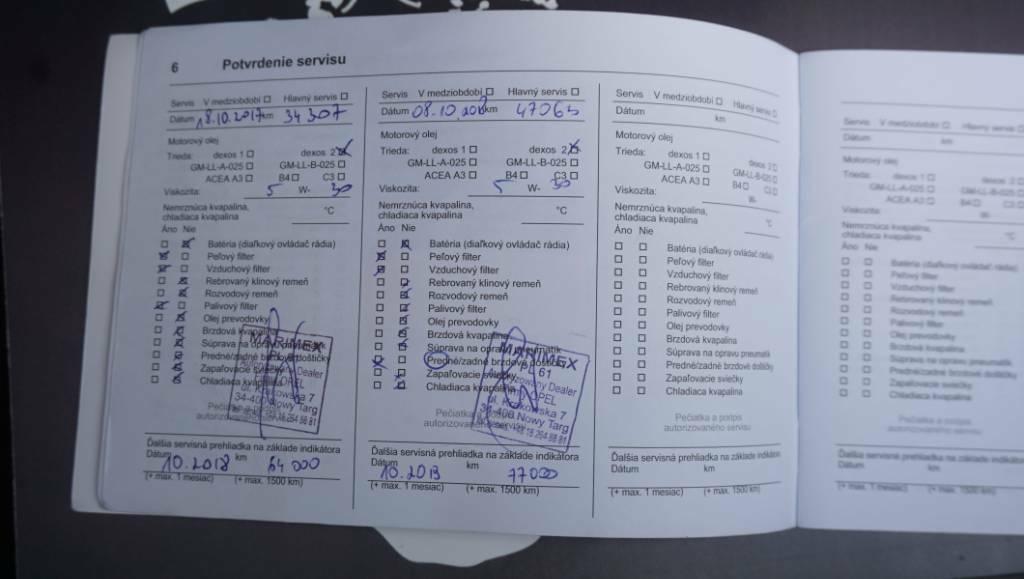 6 Potvrdenie servisu
Servis V medziobdobí Hlavný servis
Dátum 18.10.2017 km 34 307
Motorový olej
Trieda: dexos 1 dexos 2
GM-LL-A-025 GM-LL-B-025
ACEA A3 B4 C3
Viskozita: 5 W- 30
Nemrznúca kvapalina,
chladiaca kvapalina °C
Áno Nie
Batéria (diaľkový ovládač rádia)
Peľový filter
Vzduchový filter
Rebrovaný klinový remeň
Rozvodový remeň
Palivový filter
Olej prevodovky
Brzdová kvapalina
Súprava na opravu pneumatík
Predné/zadné brzdové doštičky
Zapaľovacie sviečky
Chladiaca kvapalina
MARIMEX
Dealer
OPEL
7
34-400 Nowy Targ
Pečiatka
autorizovaného servisu
Ďalšia servisná prehliadka na základe indikátora
Dátum km
10.2018 64 000
(+ max. 1 mesiac) (+ max. 1500 km)
Servis V medziobdobí Hlavný servis
Dátum 08.10.2018 km 47063
Motorový olej
Trieda: dexos 1 dexos 2
GM-LL-A-025 GM-LL-B-025
ACEA A3 B4 C3
Viskozita: 5 W- 30
Nemrznúca kvapalina,
chladiaca kvapalina °C
Áno Nie
Batéria (diaľkový ovládač rádia)
Peľový filter
Vzduchový filter
Rebrovaný klinový remeň
Rozvodový remeň
Palivový filter
Olej prevodovky
Brzdová kvapalina
Súprava na opravu pneumatík
Predné/zadné brzdové doštičky
Zapaľovacie sviečky
Chladiaca kvapalina
MARIMEX
PL 61
Autoryzowany Dealer
OPEL
ul. Krakowska 7
34-400 Nowy Targ
Pečiatka a podpis
autorizovaného servisu
Ďalšia servisná prehliadka na základe indikátora
Dátum km
10.2019 77000
(+ max. 1 mesiac) (+ max. 1500 km)
Servis V medziobdobí Hlavný servis
Dátum km
Motorový olej
Trieda: dexos 1 dexos 2
GM-LL-A-025 GM-LL-B-025
ACEA A3 B4 C3
Viskozita: W-
Nemrznúca kvapalina,
chladiaca kvapalina °C
Áno Nie
Batéria (diaľkový ovládač rádia)
Peľový filter
Vzduchový filter
Rebrovaný klinový remeň
Rozvodový remeň
Palivový filter
Olej prevodovky
Brzdová kvapalina
Súprava na opravu pneumatík
Predné/zadné brzdové doštičky
Zapaľovacie sviečky
Chladiaca kvapalina
Pečiatka a podpis
autorizovaného servisu
Ďalšia servisná prehliadka na základe indikátora
Dátum km
(+ max. 1 mesiac) (+ max. 1500 km)
Servis V medziobdobí
Dátum km
Motorový olej
Trieda: dexos 1
GM-LL-A-025 GM-LL-B-025
ACEA A3 B4 C3
Viskozita: W-
Nemrznúca kvapalina,
chladiaca kvapalina °C
Áno Nie
Batéria (diaľkový ovládač rádia)
Peľový filter
Vzduchový filter
Rebrovaný klinový remeň
Rozvodový remeň
Palivový filter
Olej prevodovky
Brzdová kvapalina
Súprava na opravu pneumatík
Predné/zadné brzdové doštičky
Zapaľovacie sviečky
Chladiaca kvapalina
Pečiatka a podpis
autorizovaného servisu
Ďalšia servisná prehliadka na základe indikátora
Dátum km
(+ max. 1 mesiac) (+ max. 1500 km)